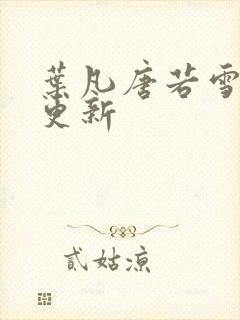 葉凡唐若雪
更新
貳姑凉